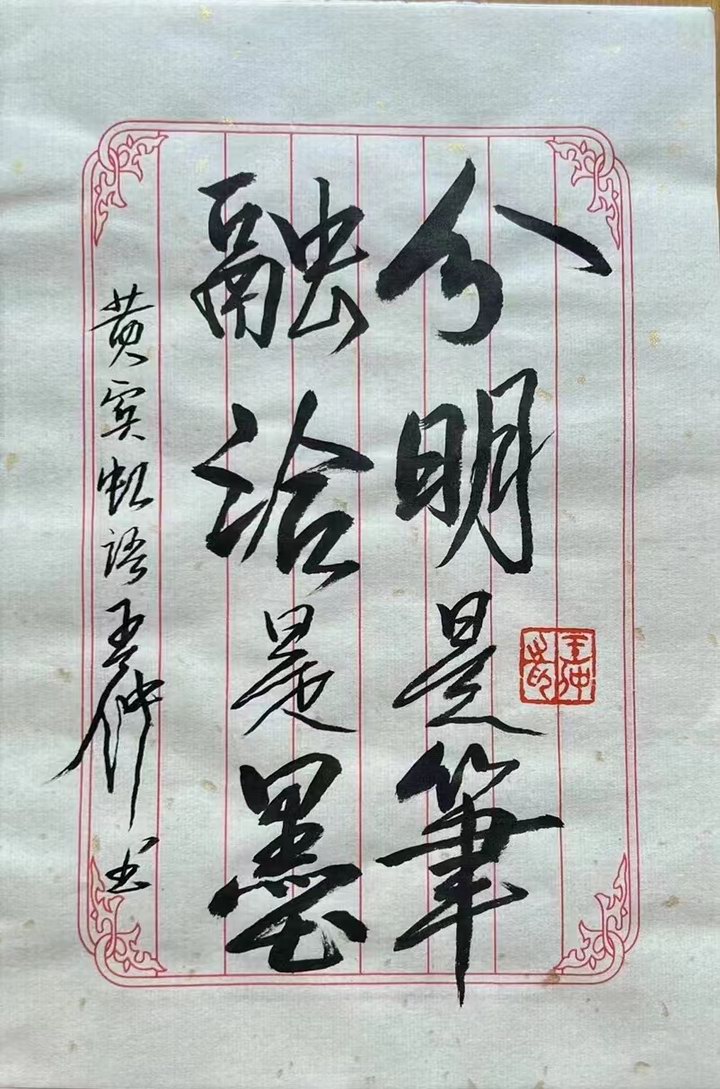 分明是筆
融洽是墨
黄宾虹語王仲書
王仲